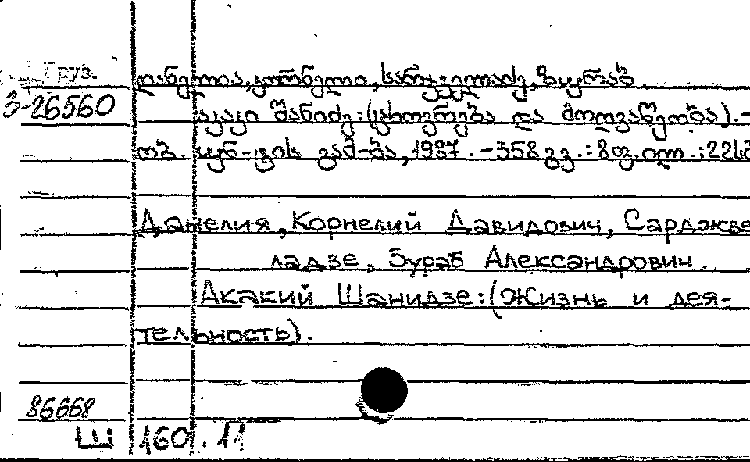 Груз.
დანელია, კორნელი, სარჯველაძე, ზურაბ
3-26560
აკაკი შანიძე: (ცხოვრება და მოღვაწეობა). -
თბ. უნ-ტის გამ-ბა, 1987. - 358 გვ.: 8 ფ. ილ.; 22
Данелия, Корнелий Давидович, Сарджве
ладзе, Зураб Александрович.
Акакий Шанидзе: (Жизнь и дея-
тельность).
86668
Ш 160.11